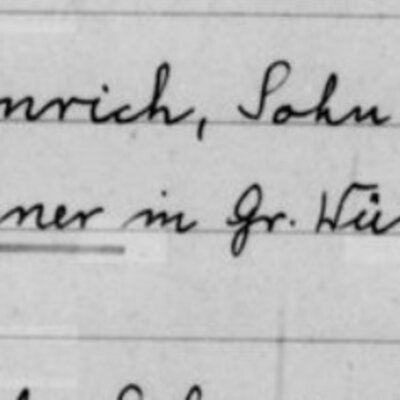 nrich, Sohn
ner in Gr. Wü